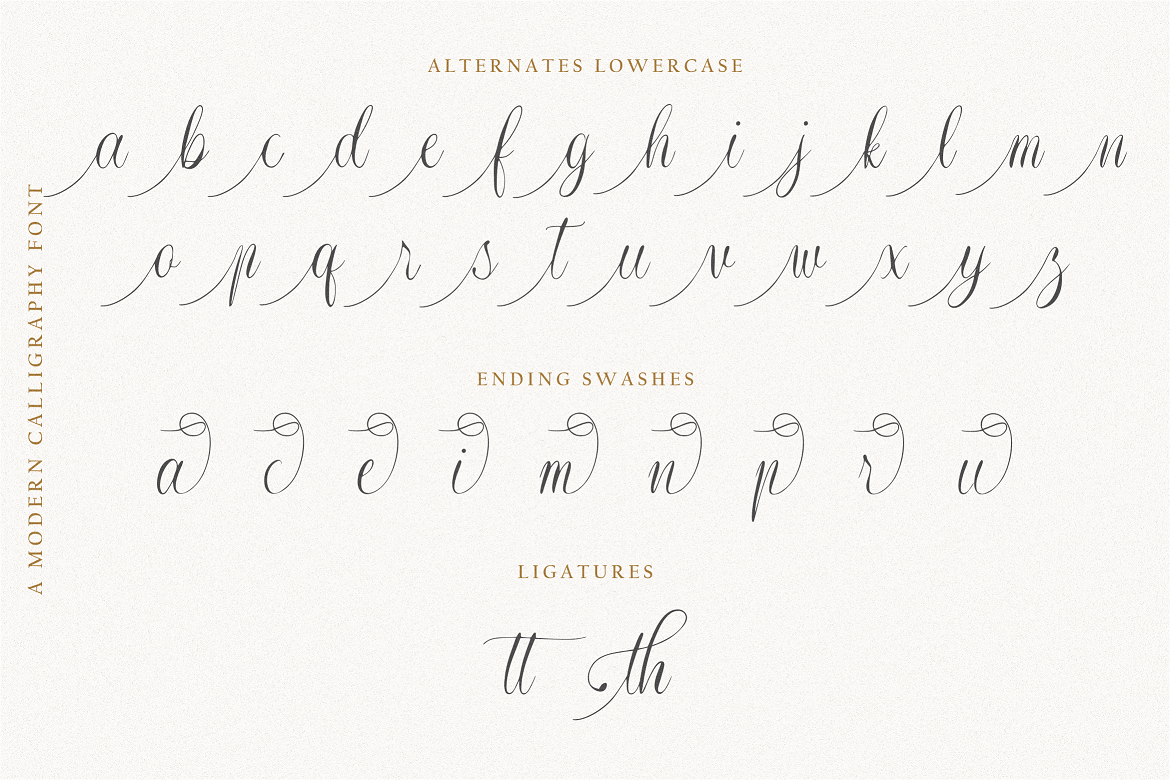 ALTERNATES LOWERCASE
a b c d e f g h i j k l m n
o p q r s t u v w x y z
A MODERN CALLIGRAPHY FONT
ENDING SWASHES
a c e i m n p r u
LIGATURES
tt th